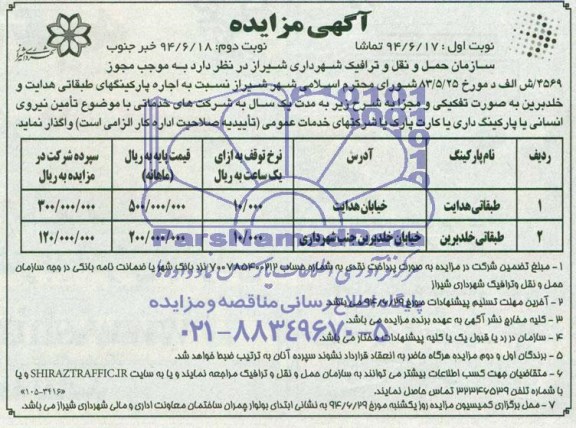 آگهی مزایده
نوبت اول : ۹۴/۶/۱۷ تماشا نوبت دوم: ۹۴/۶/۱۸ خبر جنوب
سازمان حمل و نقل و ترافیک شهرداری شیراز در نظر دارد به موجب مجوز
۴۵۶۹/ش الف د مورخ ۸۳/۵/۲۵ شورای محترم اسلامی شهر شیراز نسبت به اجاره پارکینگهای طبقاتی هدایت و
خلدبرین به صورت تفکیکی و مجزا به شرح زیر به مدت یک سال به شرکت های خدماتی با موضوع تأمین نیروی
انسانی یا پارکینگ داری یا کارت پارک یا شرکتهای خدمات عمومی (تأییدیه صلاحیت اداره کار الزامی است) واگذار نماید.
ردیف نام پارکینگ آدرس نرخ توقف به ازای یک ساعت به ریال قیمت پایه به ریال (ماهانه) سپرده شرکت در مزایده به ریال
۱ طبقاتی هدایت خیابان هدایت ۱۰/۰۰۰ ۵۰۰/۰۰۰/۰۰۰ ۳۰۰/۰۰۰/۰۰۰
۲ طبقاتی خلدبرین خیابان خلدبرین جنب شهرداری ۱۰/۰۰۰ ۲۰۰/۰۰۰/۰۰۰ ۱۲۰/۰۰۰/۰۰۰
۱ - مبلغ تضمین شرکت در مزایده به صورت پرداخت نقدی به شماره حساب ۷۰۰۷۸۵۴۰۰۲۱۲ نزد بانک شهر یا ضمانت نامه بانکی در وجه سازمان
حمل و نقل وترافیک شهرداری شیراز
۲ - آخرین مهلت تسلیم پیشنهادات مورخ ۹۴/۶/۲۹ می باشد.
۳ - کلیه مخارج نشر آگهی به عهده برنده مزایده می باشد.
۴ - سازمان در رد یا قبول یک یا کلیه پیشنهادات مختار می باشد.
۵ - برندگان اول و دوم مزایده هرگاه حاضر به انعقاد قرارداد نشوند سپرده آنان به ترتیب ضبط خواهد شد.
۶ - متقاضیان جهت کسب اطلاعات بیشتر می توانند به سازمان حمل و نقل و ترافیک مراجعه نمایند و یا به سایت SHIRAZTRAFFIC.IR و یا
با شماره تلفن ۳۲۳۴۶۵۳۹ تماس حاصل نمایند. «۱۰۵-۳۹۱۶»
۷ - محل برگزاری کمیسیون مزایده روز یکشنبه مورخ ۹۴/۶/۲۹ به نشانی ابتدای بولوار چمران ساختمان معاونت اداری و مالی شهرداری شیراز می باشد.
ParsNamadData
پایگاه اطلاع رسانی مناقصه و مزایده
۰۲۱-۸۸۳۴۹۶۷۰-۵